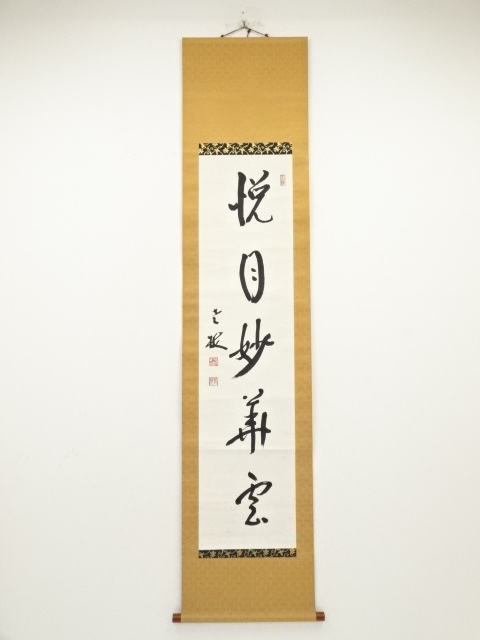 悦目妙華雲